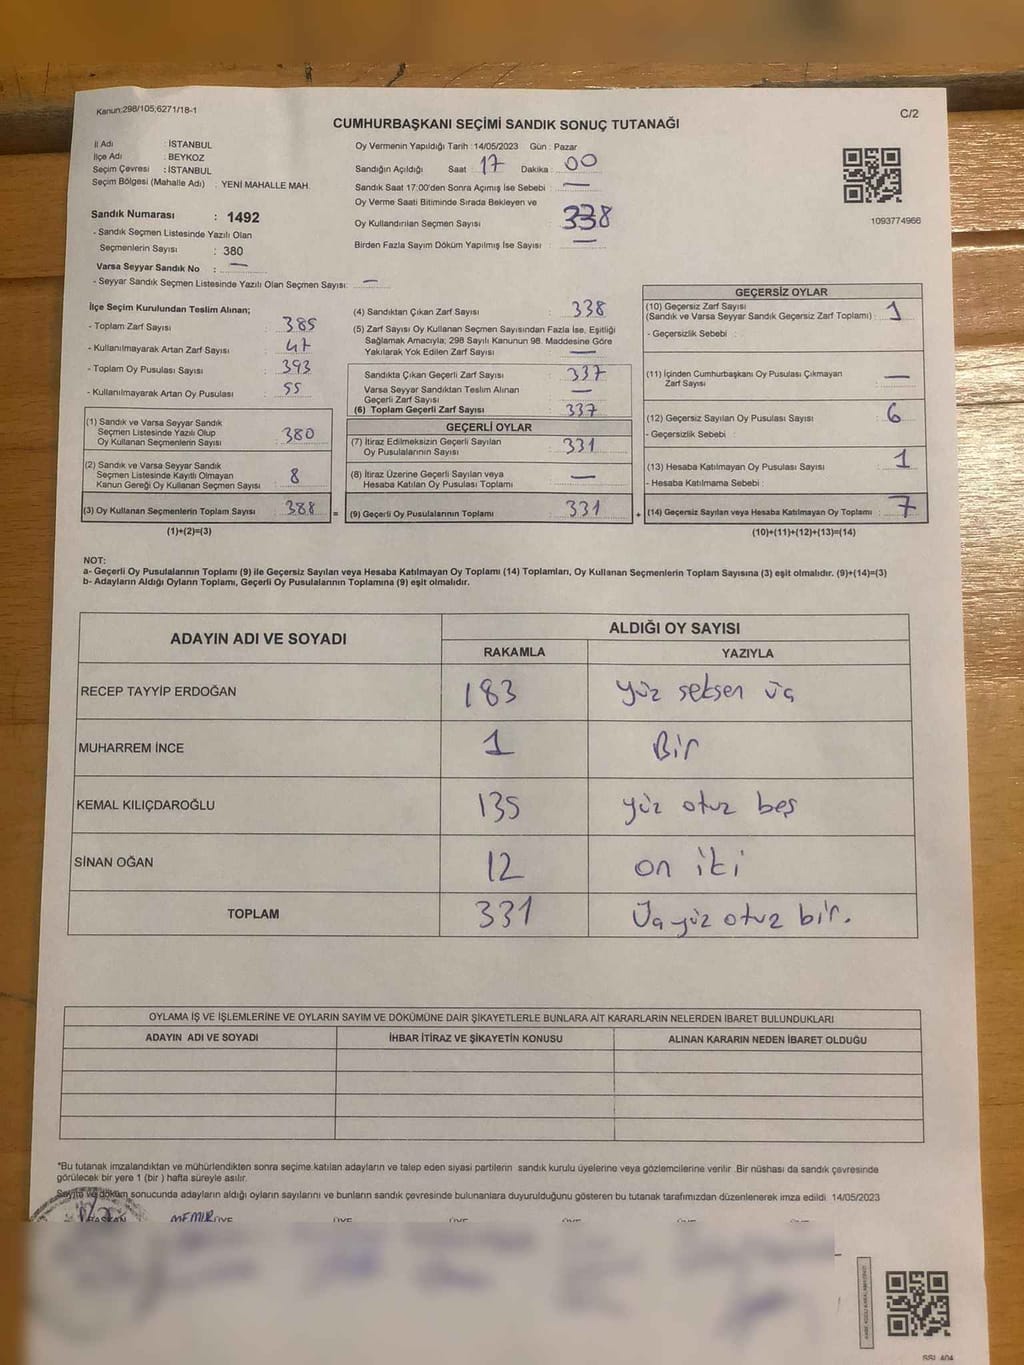 Kanun:298/105;6271/18-1
C/2
CUMHURBAŞKANI SEÇİMİ SANDIK SONUÇ TUTANAĞI
İl Adı : İSTANBUL
İlçe Adı : BEYKOZ
Seçim Çevresi : İSTANBUL
Seçim Bölgesi (Mahalle Adı) : YENİ MAHALLE MAH.
Sandık Numarası : 1492
- Sandık Seçmen Listesinde Yazılı Olan
Seçmenlerin Sayısı : 380
Varsa Seyyar Sandık No : —
- Seyyar Sandık Seçmen Listesinde Yazılı Olan Seçmen Sayısı: —
Oy Vermenin Yapıldığı Tarih : 14/05/2023 Gün : Pazar
Sandığın Açıldığı Saat : 17 Dakika : 00
Sandık Saat 17:00'den Sonra Açımış İse Sebebi : —
Oy Verme Saati Bitiminde Sırada Bekleyen ve
Oy Kullandırılan Seçmen Sayısı : 338
Birden Fazla Sayım Döküm Yapılmış İse Sayısı : —
1093774966
İlçe Seçim Kurulundan Teslim Alınan;
- Toplam Zarf Sayısı : 385
- Kullanılmayarak Artan Zarf Sayısı : 47
- Toplam Oy Pusulası Sayısı : 393
- Kullanılmayarak Artan Oy Pusulası : 55
(1) Sandık ve Varsa Seyyar Sandık
Seçmen Listesinde Yazılı Olup
Oy Kullanan Seçmenlerin Sayısı : 380
(2) Sandık ve Varsa Seyyar Sandık
Seçmen Listesinde Kayıtlı Olmayan
Kanun Gereği Oy Kullanan Seçmen Sayısı : 8
(3) Oy Kullanan Seçmenlerin Toplam Sayısı : 388 =
(1)+(2)=(3)
(4) Sandıktan Çıkan Zarf Sayısı : 338
(5) Zarf Sayısı Oy Kullanan Seçmen Sayısından Fazla İse, Eşitliği
Sağlamak Amacıyla; 298 Sayılı Kanunun 98. Maddesine Göre
Yakılarak Yok Edilen Zarf Sayısı : —
Sandıkta Çıkan Geçerli Zarf Sayısı : 337
Varsa Seyyar Sandıktan Teslim Alınan
Geçerli Zarf Sayısı : —
(6) Toplam Geçerli Zarf Sayısı : 337
GEÇERLİ OYLAR
(7) İtiraz Edilmeksizin Geçerli Sayılan
Oy Pusulalarının Sayısı : 331
(8) İtiraz Üzerine Geçerli Sayılan veya
Hesaba Katılan Oy Pusulası Toplamı : —
(9) Geçerli Oy Pusulalarının Toplamı : 331 +
GEÇERSİZ OYLAR
(10) Geçersiz Zarf Sayısı
(Sandık ve Varsa Seyyar Sandık Geçersiz Zarf Toplamı) : 1
- Geçersizlik Sebebi :
(11) İçinden Cumhurbaşkanı Oy Pusulası Çıkmayan
Zarf Sayısı : —
(12) Geçersiz Sayılan Oy Pusulası Sayısı : 6
- Geçersizlik Sebebi :
(13) Hesaba Katılmayan Oy Pusulası Sayısı : 1
- Hesaba Katılmama Sebebi :
(14) Geçersiz Sayılan veya Hesaba Katılmayan Oy Toplamı : 7
(10)+(11)+(12)+(13)=(14)
NOT:
a- Geçerli Oy Pusulalarının Toplamı (9) ile Geçersiz Sayılan veya Hesaba Katılmayan Oy Toplamı (14) Toplamları, Oy Kullanan Seçmenlerin Toplam Sayısına (3) eşit olmalıdır. (9)+(14)=(3)
b- Adayların Aldığı Oyların Toplamı, Geçerli Oy Pusulalarının Toplamına (9) eşit olmalıdır.
ADAYIN ADI VE SOYADI ALDIĞI OY SAYISI
RAKAMLA YAZIYLA
RECEP TAYYİP ERDOĞAN 183 yüz seksen üç
MUHARREM İNCE 1 Bir
KEMAL KILIÇDAROĞLU 135 yüz otuz beş
SİNAN OĞAN 12 on iki
TOPLAM 331 Üçyüz otuz bir.
OYLAMA İŞ VE İŞLEMLERİNE VE OYLARIN SAYIM VE DÖKÜMÜNE DAİR ŞİKAYETLERLE BUNLARA AİT KARARLARIN NELERDEN İBARET BULUNDUKLARI
ADAYIN ADI VE SOYADI İHBAR İTİRAZ VE ŞİKAYETİN KONUSU ALINAN KARARIN NEDEN İBARET OLDUĞU
*Bu tutanak imzalandıktan ve mühürlendikten sonra seçime katılan adayların ve talep eden siyasi partilerin sandık kurulu üyelerine veya gözlemcilerine verilir. Bir nüshası da sandık çevresinde
görülecek bir yere 1 (bir ) hafta süreyle asılır.
Sayım ve döküm sonucunda adayların aldığı oyların sayılarını ve bunların sandık çevresinde bulunanlara duyurulduğunu gösteren bu tutanak tarafımızdan düzenlenerek imza edildi. 14/05/2023
BAŞKAN MEMUR ÜYE ÜYE ÜYE ÜYE ÜYE ÜYE